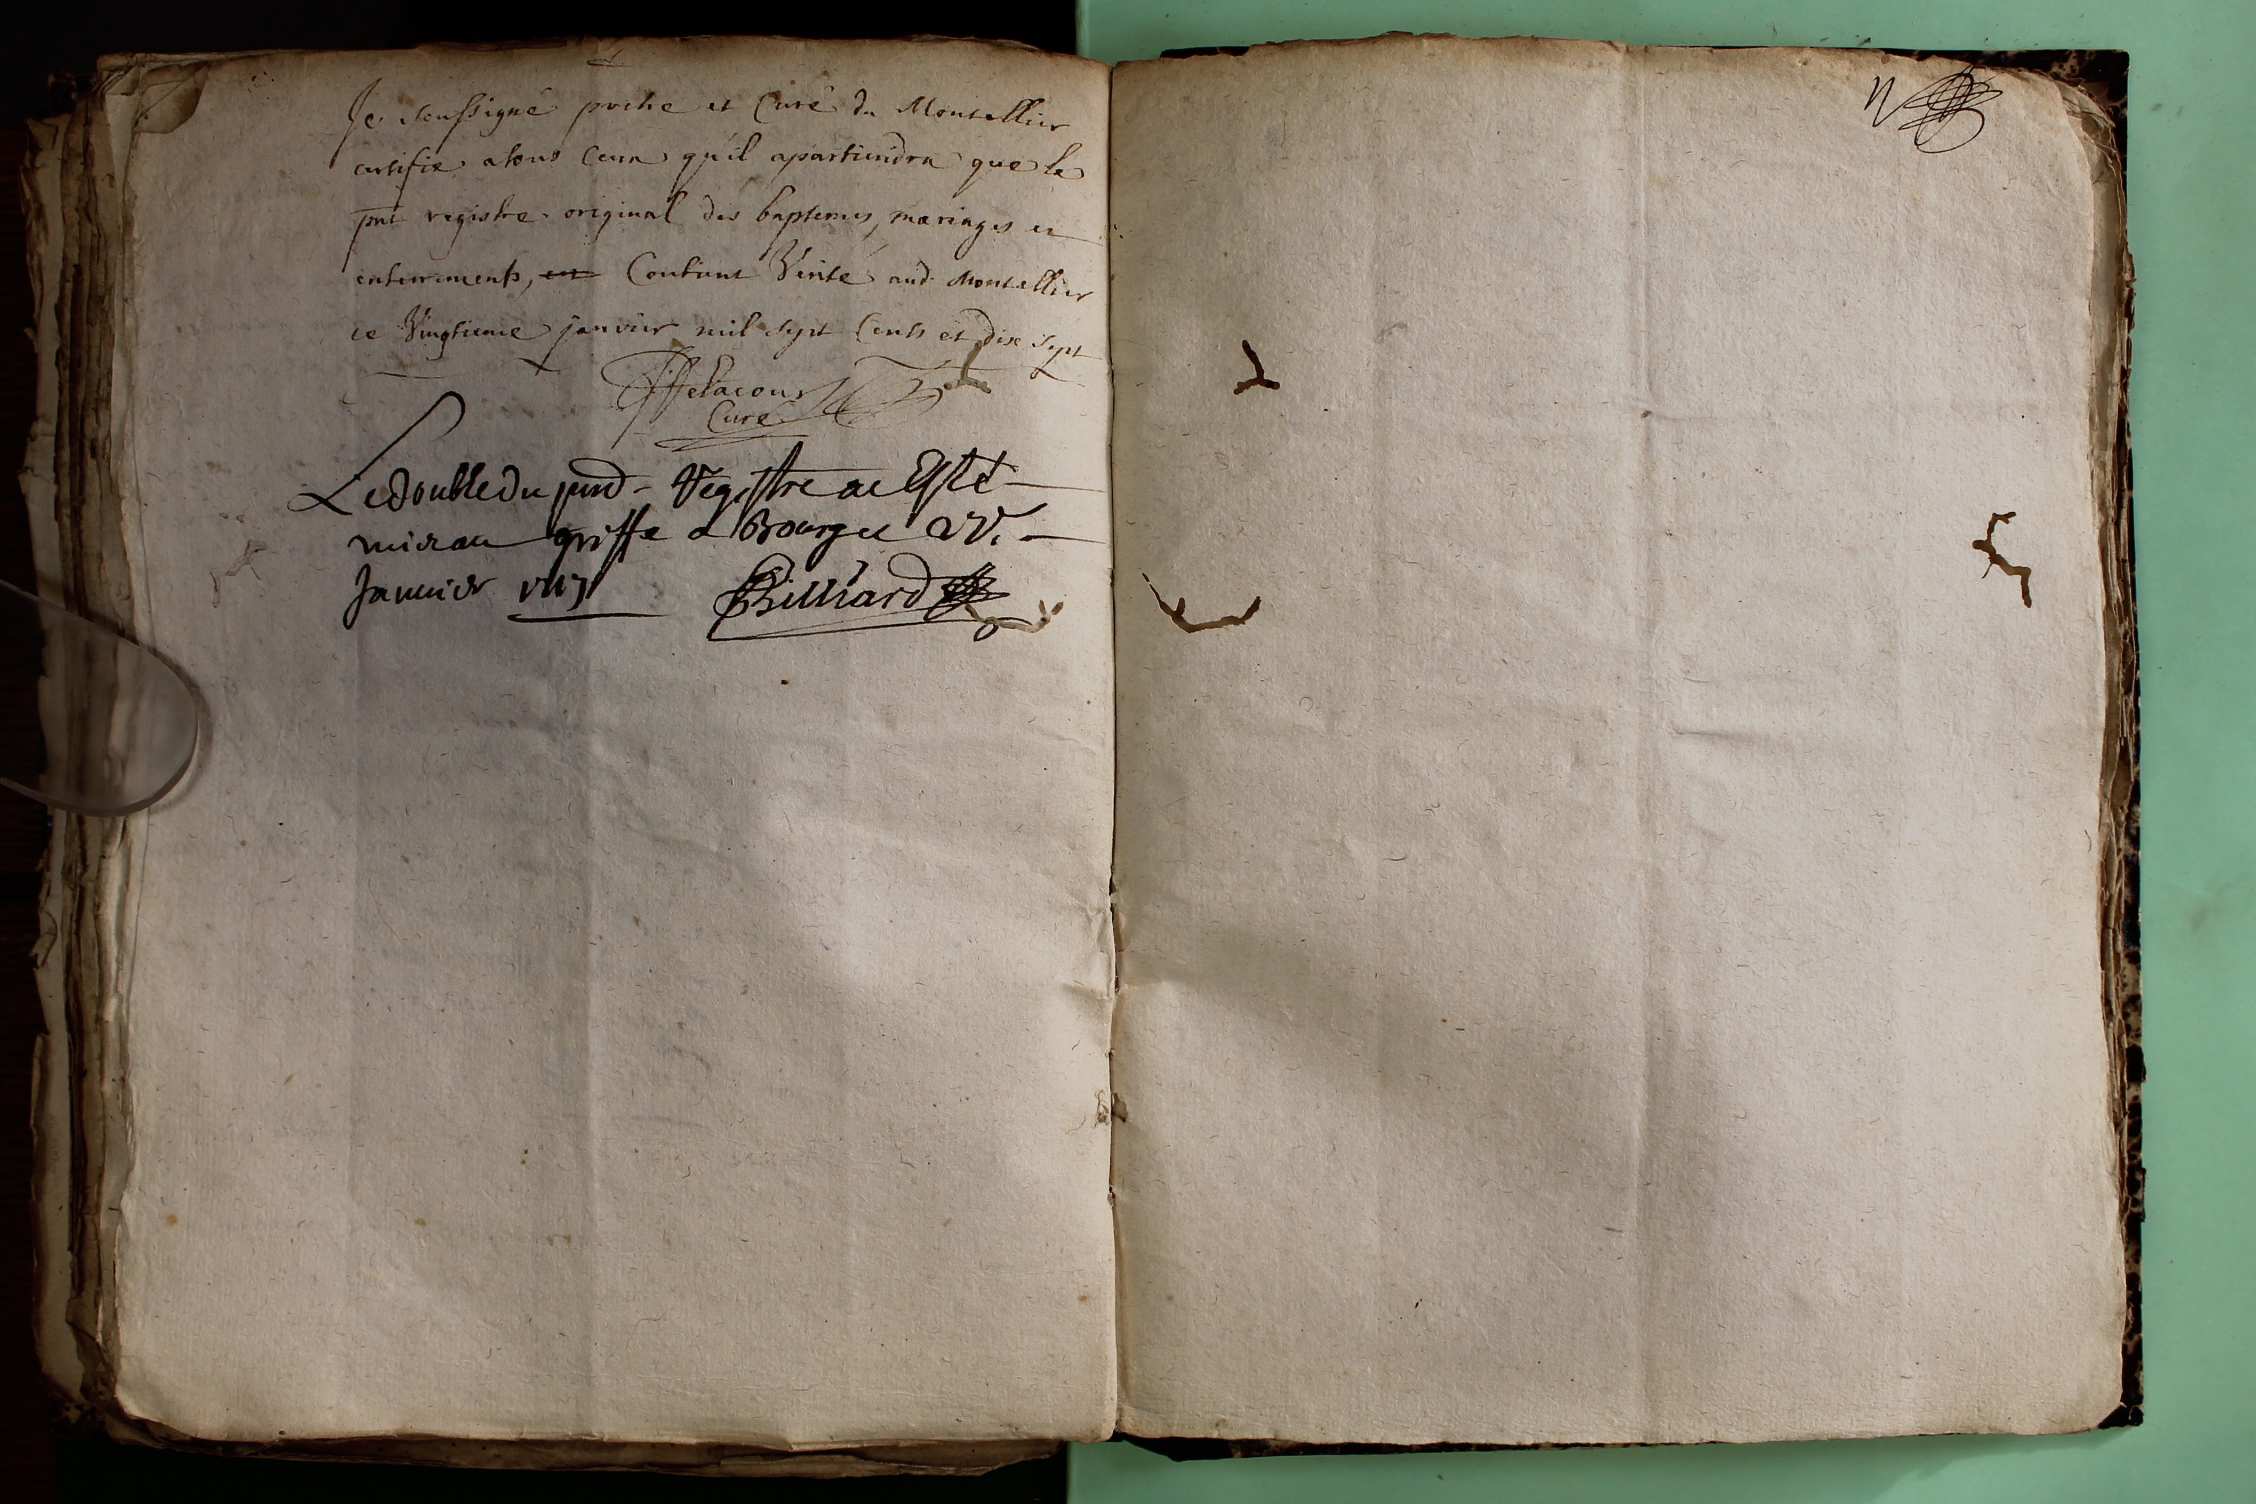 Je soussigné pretre et Curé du Montellier
certifie a tous ceux qu'il apartiendra que le
pnt registre original des baptemes, mariages et
enterrements, Contient Verité aud. Montellier
ce Vingtieme janvier mil sept Cents et dix sept
Delacour
Curé
Le double du pnd. Registre ae Esté
mis au griffe a Bourg ce
Januier 1717
Billiard